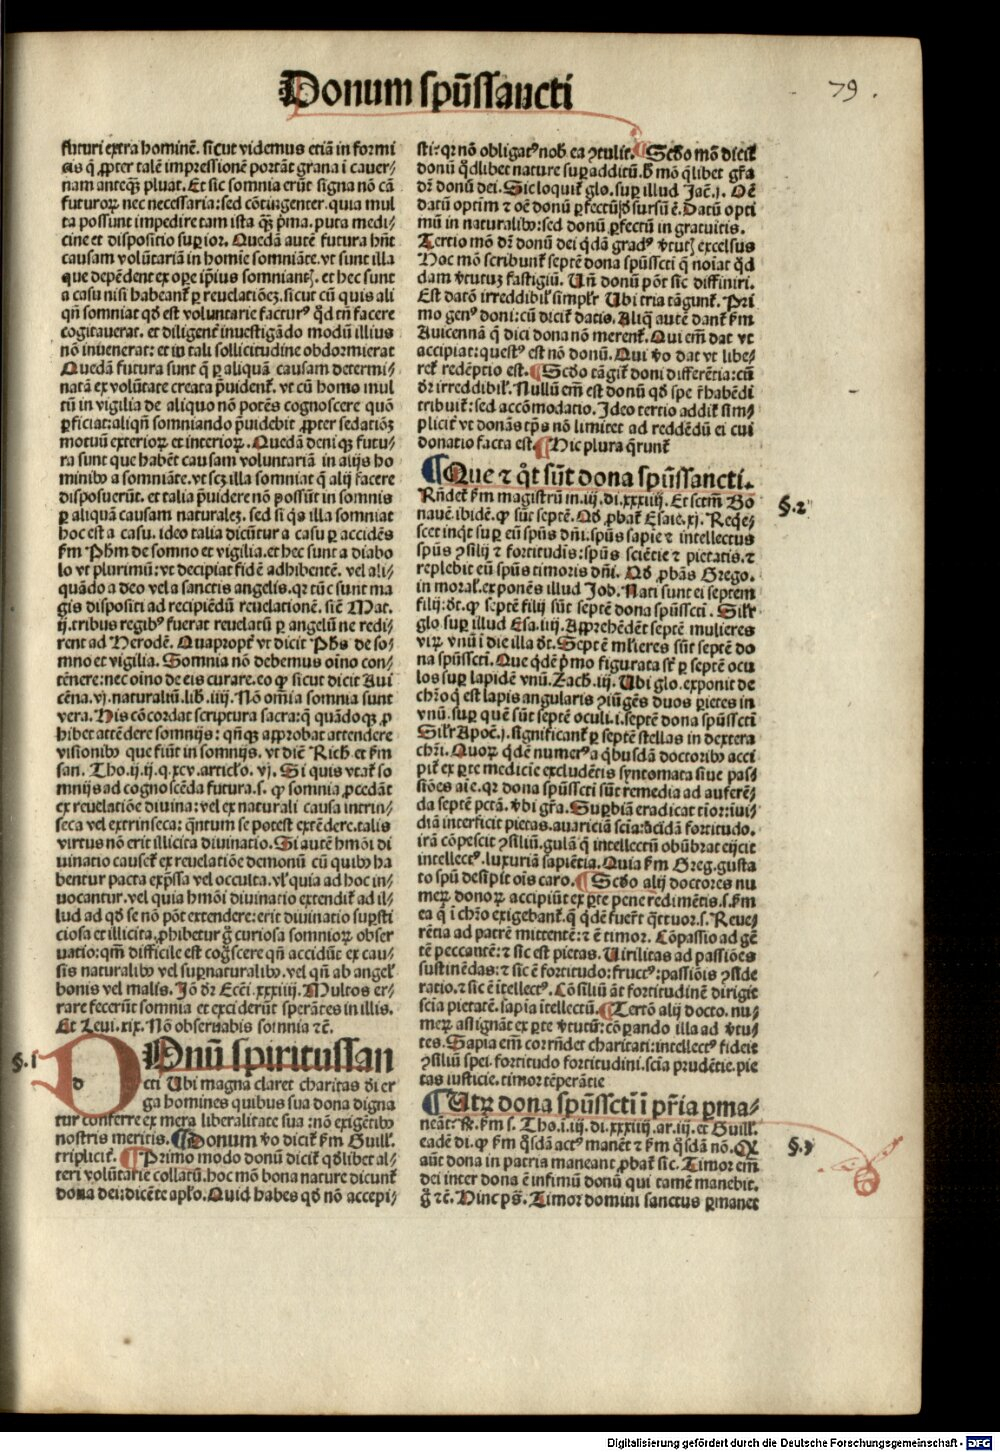 Donum spūssancti
79.
futuri extra hominē. sicut videmus etiā in formi
cis q̄ ꝓpter talē impressionē portāt grana i cauer⸗
nam anteqꝫ pluat. Et sic somnia erūt signa nō cā
futuroꝝ nec necessaria: sed cōtingenter. quia mul
ta possunt impedire tam ista qꝫ p̄ma. puta medi⸗
cine et dispositio suꝑior. Quedā autē futura hn̄t
causam volūtariā in homie somniāte. vt sunt illa
que depēdent ex oꝑe ip̄ius somniantꝭ. et hec sunt
a casu nisi habeant̄ ꝑ reuelatiōeꝫ. sicut cū quis ali
qn̄ somniat qd̄ est voluntarie facturꝰ qd̄ tn̄ facere
cogitauerat. et diligent̄ inuestigādo modū illius
nō inuenerat: et in tali sollicitudine obdormierat
Quedā futura sunt q̄ ꝑ aliquā causam determi⸗
natā ex volūtate creata p̄uident̄. vt cū homo mul
tū in vigilia de aliquo nō potēs cognoscere quō
ꝑficiat: aliqn̄ somniando p̄uidebit ꝓpter sedatiōeꝫ
motuū exterioꝝ et interioꝝ. Quedā deniqꝫ futu⸗
ra sunt que habēt causam voluntariā in alijs ho
minibꝰ a somniāte. vt scꝫ illa somniat q̄ alij facere
disposuerūt. et talia p̄uidere nō possūt in somnis
ꝑ aliquā causam naturaleꝫ. sed si q̄s illa somniat
hoc est a casu. ideo talia dicūtur a casu ꝑ accidēs
ẜm Ph̄m de somno et vigilia. et hec sunt a diabo
lo vt plurimū: vt decipiat fidē adhibentē. vel ali⸗
quādo a deo vel a sanctis angelis. qꝛ tūc sunt ma
gis dispositi ad recipiēdū reuelationē. sicē Mat.
ij. tribus regibꝰ fuerat reuelatū ꝑ angelū ne redi⸗
rent ad Herodē. Quapropt̄ vt dicit Ph̄s de so⸗
mno et vigilia. Somnia nō debemus oīno con⸗
tēnere: nec oīno de eis curare. eo ꝙ sicut dicit Aui
cēna. vj. naturaliū. lib. iiij. Nō om̄ia somnia sunt
vera. His cōcordat scriptura sacra: q̄ quādoqꝫ ꝓ
hibet attēdere somnijs: qn̄qꝫ approbat attendere
visionibꝰ que fiūt in somnijs. vt dicē Rich̄ et ẜm
san. Tho. ij. ij. q. xcv. articło. vj. Si quis vtat̄ so
mnijs ad cognoscēda futura. s. ꝙ somnia ꝓcedāt
ex reuelatiōe diuina: vel ex naturali causa intrin⸗
seca vel extrinseca: qn̄tum se potest extēdere. talis
virtus nō erit illicita diuinatio. Si autē hmōi di
uinatio causet̄ ex reuelatiōe demonū cū quibꝰ ha
bentur pacta exp̄ssa vel occulta. vł quia ad hoc in⸗
uocantur. vel quia hmōi diuinatio extendit̄ ad il⸗
lud ad qd̄ se nō pōt extendere: erit diuinatio suꝑsti
ciosa et illicita. ꝓhibetur g̊ curiosa somnioꝝ obser
uatio: qm̄ difficile est cog̊scere qn̄ accidūt ex cau⸗
sis naturalibꝰ vel suꝑnaturalibꝰ. vel qn̄ ab angeł
bonis vel malis. Jō dr̄ Ecc̄i. xxxiiij. Multos er⸗
rare fecerūt somnia et exciderūt sperātes in illis.
Et Leui. xix. Nō obseruabis somnia ⁊c̄.
§.1
d
DOnū spiritussan
cti Ubi magna claret charitas dei er
ga homines quibus sua dona digna
tur conferre ex mera liberalitate sua: nō exigētibꝰ
nostris meritis. Donum v̊o dicit̄ ẜm Guill.
triplicit̄. Primo modo donū dicit̄ qd̄libet al⸗
teri volūtarie collatū. hoc mō bona nature dicunt̄
dona dei: dicēte apło. Quid habes qd̄ nō accepi⸗
sti: qꝛ nō obligatꝰ nob̄ ea ꝯtulit. Scd̊o mō dicit̄
donū qd̄libet nature suꝑadditū. h̄ mō qł̄ibet gr̄a
dr̄ donū dei. Sic loquit̄ glo. suꝑ illud Jac̄. j. Om̄e
datū optim̄ ⁊ oē donū ꝑfectū dsursū ē. Datū opti
mū in naturalibꝰ: sed donū ꝑfectū in gratuitis.
Tertio mō dr̄ donū dei qd̄ā gradꝰ v̊tutꝭ excelsus
Hoc mō scribunt̄ septē dona spūsscti q̄ noīat q̊d
dam v̊tutuꝫ fastigiū. Un̄ donū pōt sic diffiniri.
Est datō irreddibił simplr̄ Ubi tria tāgunt̄. Pri
mo genꝰ doni: cū dicit̄ datis. Aliq̄ autē dant̄ ẜm
Auicennā q̄ dici dona nō merent̄. Qui em̄ dat vt
accipiat: questꝰ est nō donū. Qui v̊o dat vt libe⸗
ret̄ redēptio est. Scd̊o tāgit̄ doni differētia: cū
dr̄ irreddibił. Nullū em̄ est donū qd̄ spe r̄habēdi
tribuit̄: sed accōmodatio. Jdeo tertio addit̄ sim⸗
plicit̄ vt donās tp̄s nō limitet ad reddēdū ei cui
donatio facta est. Hic plura q̄runt̄
Que ⁊ q̊t sūt dona spūssancti.
Rn̄det̄ ẜm magistrū in. iij. di. xxxiiij. Et sctm̄ Bo
nauē. ibidē. ꝙ sūt septē. Qd̄ ꝓbat̄ Esaie. xj. Req̄e⸗
scet inqt suꝑ eū spūs dn̄i. spūs sapie ⁊ intellectus
spūs ꝯsilij ⁊ fortitudīs: spūs sciētie ⁊ pietatis. ⁊
replebit eū spūs timoris dn̄i. Qd̄ ꝓbās Grego.
in moral. exponēs illud Job. Nati sunt ei septem
filij: dr̄. ꝙ septē filij sūt septē dona spūsscti. Silr̄
glo suꝑ illud Esa. iiij. Apprehēdēt septē mulieres
viꝝ vnū i die illa dr̄. Septē mlieres sūt septē do
na spūsscti. Que qd̄ē p̄mo figurata st̄ ꝑ septē ocu
los suꝑ lapidē vnū. Zach. iij. Ubi glo. exponit de
chr̄o q̄ est lapis angularis ꝯiūgēs duos ꝑietes in
vnū. suꝑ quē sūt septē oculi. i. septē dona spūsscti
Silr̄ Apoc̄. j. significant̄ ꝑ septē stellas in dextera
chr̄i. Quoꝝ qd̄ē numerꝰ a q̊busdā doctoribꝰ acci
pit̄ ex ꝑte medicie excludētis syntomata siue pas⸗
siōes aīe. qꝛ dona spūsscti sūt remedia ad auferē⸗
da septē pctā. v̊bi gr̄a. Suꝑbiā eradicat tīor: īui⸗
diā interficit pietas. auariciā scīa: accidā fortitudo.
irā cōpescit ꝯsiliū. gulā q̄ intellectū obūbrat eijcit
intellectꝰ. luxuriā sapiētia. Quia ẜm Greg. gusta
to spū desipit oīs caro. Scd̊o alij doctores nu
meꝝ donoꝝ accipiūt ex ꝑte pene redimētis. s. ẜm
ea q̄ i chr̄o exigebant̄. q̄ qd̄ē fuer̄t q̄ttuor. s. Reue⸗
rētia ad patrē mittentē: ⁊ ē timor. Cōpassio ad gē
tē peccantē: ⁊ sic est pietas. Uirilitas ad passiōes
sustinēdas: ⁊ sic ē fortitudo: fructꝰ: passiōis ꝯside
ratio. ⁊ sic ē itellectꝰ. Cōsiliū āt fortitudinē dirigit
scīa pietatē. sapīa itellectū. Tertō alij docto. nu⸗
meꝝ assignāt ex ꝑte v̊tutū: cōꝑando illa ad v̊tu⸗
tes. Sapīa em̄ corrn̄det charitati: intellectꝰ fideiꝭ
ꝯsiliū spei. fortitudo fortitudini. scīa prudētie. pie
tas iusticie. timor tēperātie
Utꝝ dona spūsscti i pr̄ia ꝑma⸗
neāt Rͦ. ẜm s. Tho. i. iij. di. xxxiiij. ar. iij. et Guill.
eadē di. ꝙ ẜm q̄sdā actꝰ manēt ⁊ ẜm q̄sdā nō. Qꝛ
aūt dona in patria maneant ꝓbat̄ sic. Timor em̄
dei inter dona ē infimū donū qui tamē manebit.
g̊ ⁊c̄. Hinc ps̄. Timor domini sanctus ꝑmanet
§.2
§.3
Digitalisierung gefördert durch die Deutsche Forschungsgemeinschaft - DFG